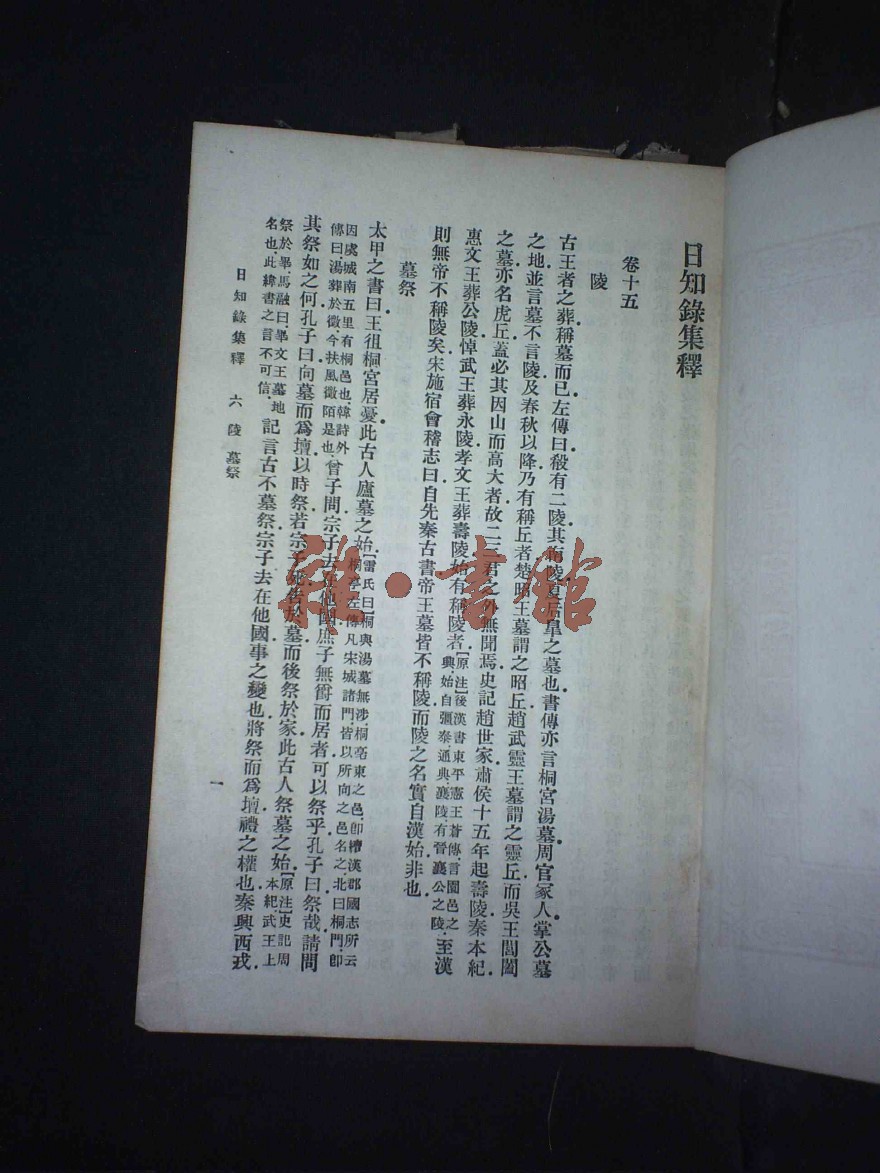 日知錄集釋
卷十五
陵
古王者之葬稱墓而已左傳曰殽有二陵其南陵夏后皐之墓也書傳亦言桐宮湯墓周官冢人掌公墓
之地並言墓不言陵及春秋以降乃有稱丘者楚昭王墓謂之昭丘趙武靈王墓謂之靈丘而吳王闔閭
之墓亦名虎丘蓋必其因山而高大者故二三君之外無聞焉史記趙世家肅侯十五年起壽陵秦本紀
惠文王葬公陵悼武王葬永陵孝文王葬壽陵始有稱陵者【原注】後漢書東平憲王蒼傳言園邑之興始自彊秦通典襄陵有晉襄公之陵至漢
則無帝不稱陵矣宋施宿會稽志曰自先秦古書帝王墓皆不稱陵而陵之名實自漢始非也
墓祭
太甲之書曰王徂桐宮居憂此古人廬墓之始【雷氏曰】桐與湯墓無涉桐亳東之邑卽續漢郡國志所云
因虞城南五里有桐邑也韓詩外傳曰湯葬於徵今扶風徵陌是也曾子問宗子去在他國庶子無爵而居者可以祭乎孔子曰祭哉請問
桐亭左傳凡宋城諸門皆以所向之邑名之北曰桐門卽
其祭如之何孔子曰向墓而爲壇以時祭若宗子死告於墓而後祭於家此古人祭墓之始【原注】史記周本紀武王上
祭於畢馬融曰畢文王墓地名也此緯書之言不可信記言古不墓祭宗子去在他國事之變也將祭而爲壇禮之權也秦興西戎
日知錄集釋 六 陵 墓祭
一
雜·書館